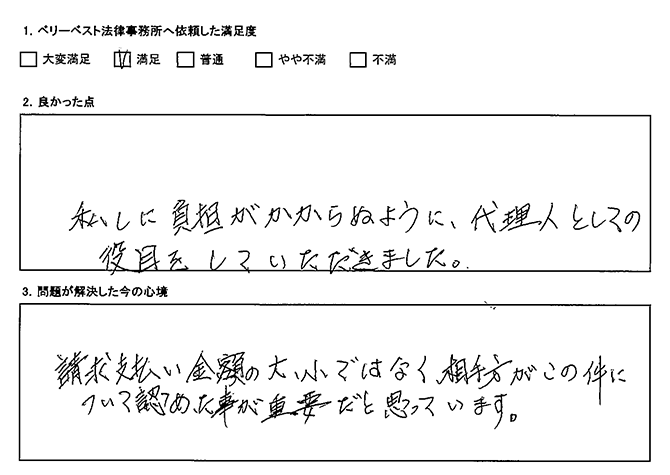 1. ベリーベスト法律事務所へ依頼した満足度
□ 大変満足 ☑ 満足 □ 普通 □ やや不満 □ 不満
2. 良かった点
私しに負担がかからぬように、代理人としての
役目をしていただきました。
3. 問題が解決した今の心境
請求支払い金額の大小ではなく、相手方がこの件に
ついて認めた事が重要だと思っています。